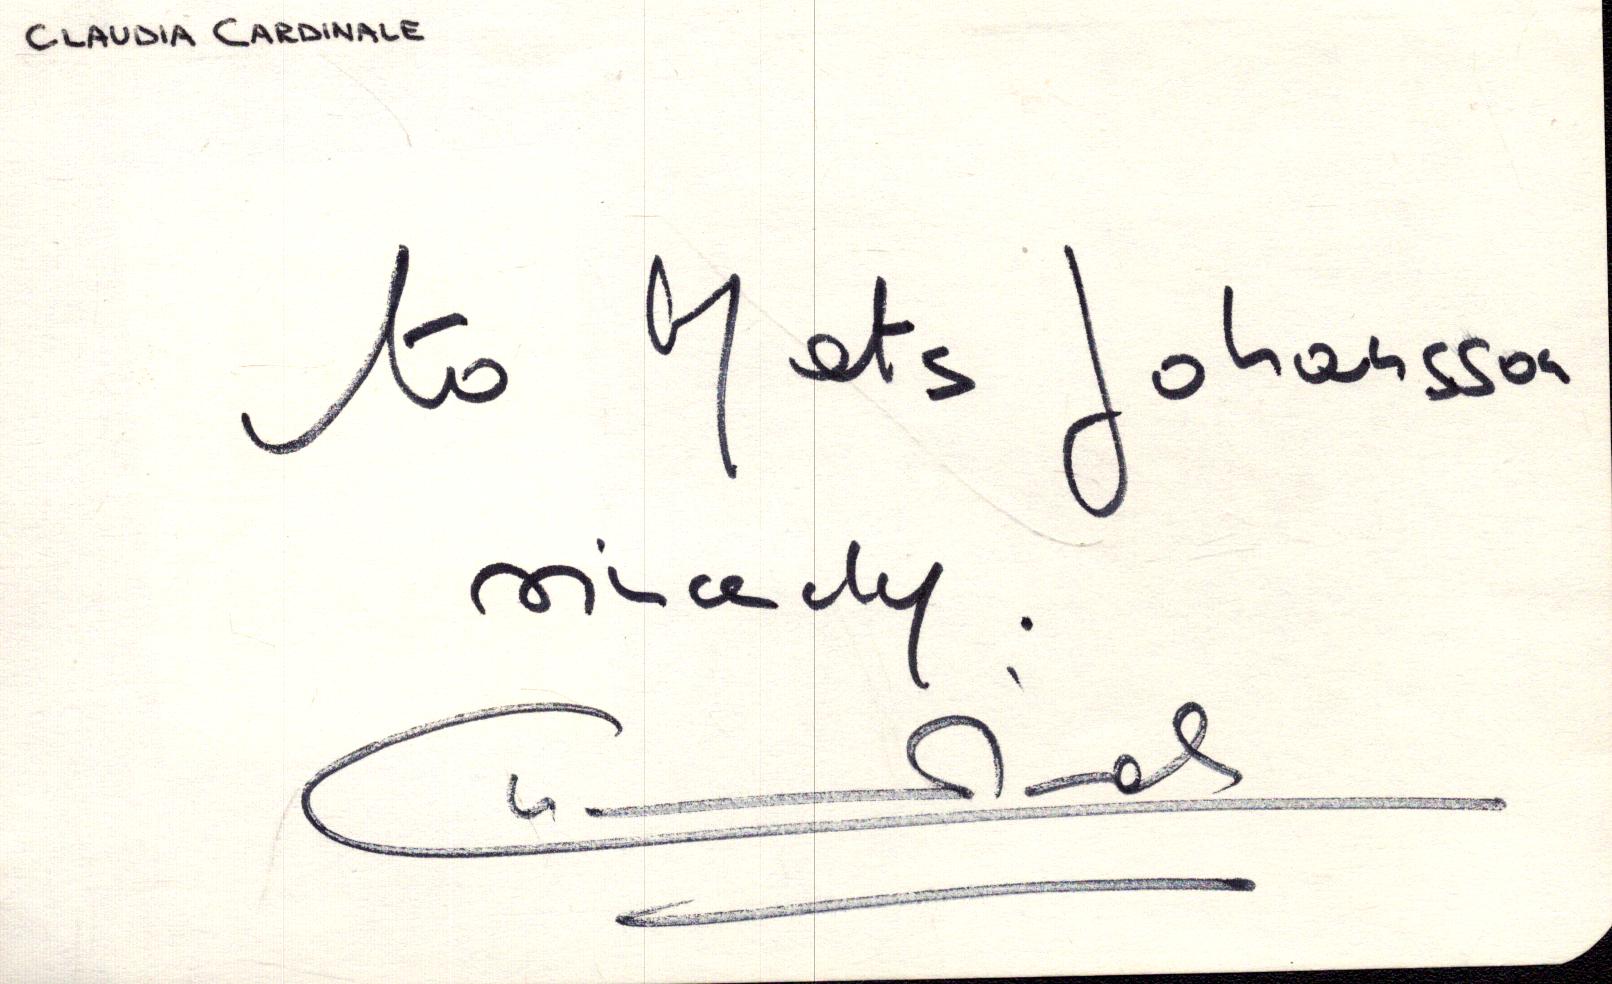 CLAUDIA CARDINALE
to Mats Johansson
sincerely